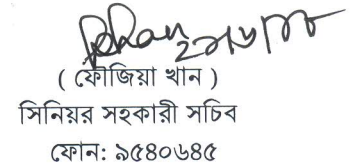 ( ফৌজিয়া খান )
সিনিয়র সহকারী সচিব
ফোন: ৯৫৪০৬৪৫